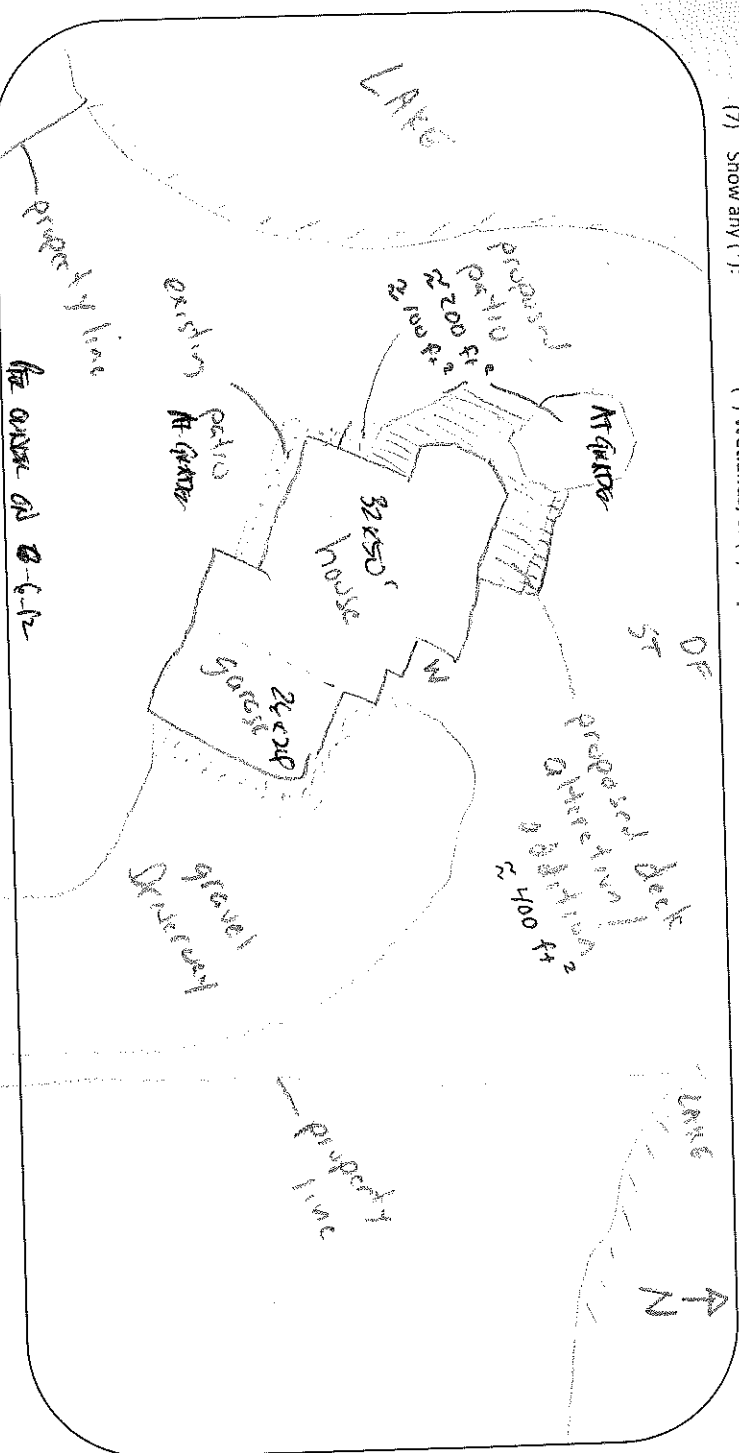 (7) Show any (*):
LAKE
property line
existin patio
At GRADE
proposed
patio
≈ 200 ft²
≈ 100 ft²
At GRADE
32x50'
house
W
garage
DF
ST
proposed deck
alteration /
addition
≈ 400 ft²
gravel
Driveway
property
line
LAKE
N